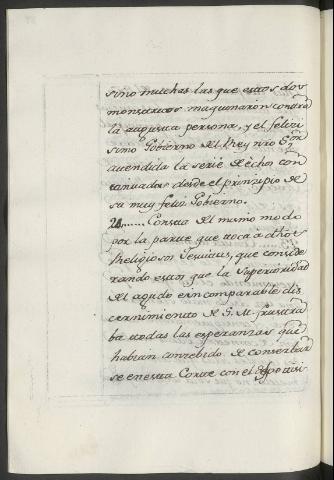 sino muchas las que estos dos
monstruos maquinaron contra
la augusta persona, y el felizi
simo Gobierno del Rey nro Sr
atendida la serie de echos con
tinuados desde el principio de
su muy feliz Gobierno.
20....... Consta del mismo modo
por la parte que toca a dhos
Religiosos Jesuitas, que conside
rando estos que la Superioridad
del agudo e incomparable dis
cernimiento de S. M. frustra
ba todas las esperanzas que
habian concebido de conserbar
se en esta Corte con el despotis